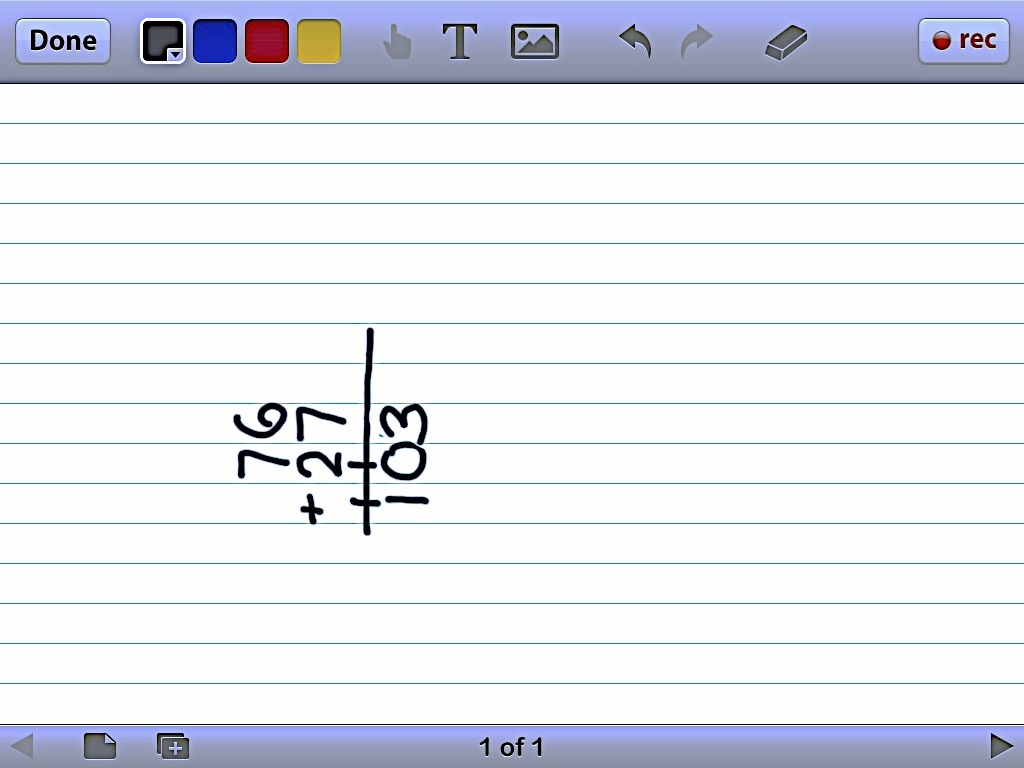 Done T rec
76
+ 27
103
1 of 1